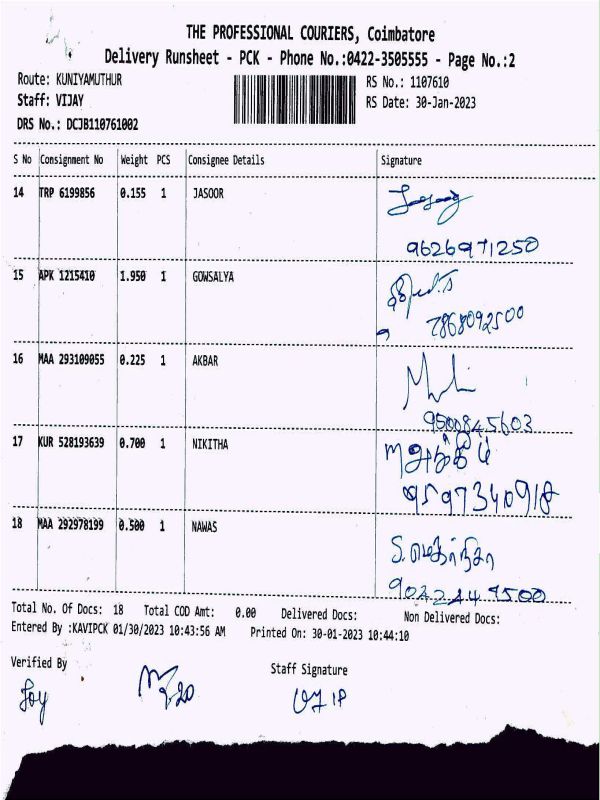 THE PROFESSIONAL COURIERS, Coimbatore
Delivery Runsheet - PCK - Phone No.:0422-3505555 - Page No.:2
Route: KUNIYAMUTHUR
RS No.: 1107610
Staff: VIJAY
RS Date: 30-Jan-2023
DRS No.: DCJB110761002
S No Consignment No Weight PCS Consignee Details Signature
14 TRP 6199856 0.155 1 JASOOR
9626971250
15 APK 1215410 1.950 1 GOWSALYA
7868092500
16 MAA 293109055 0.225 1 AKBAR
9500845603
17 KUR 528193639 0.700 1 NIKITHA
9597340918
18 MAA 292978199 0.500 1 NAWAS
Total No. Of Docs: 18 Total COD Amt: 0.00 Delivered Docs: Non Delivered Docs:
Entered By :KAVIPCK 01/30/2023 10:43:56 AM Printed On: 30-01-2023 10:44:10
Verified By
Staff Signature
Joy